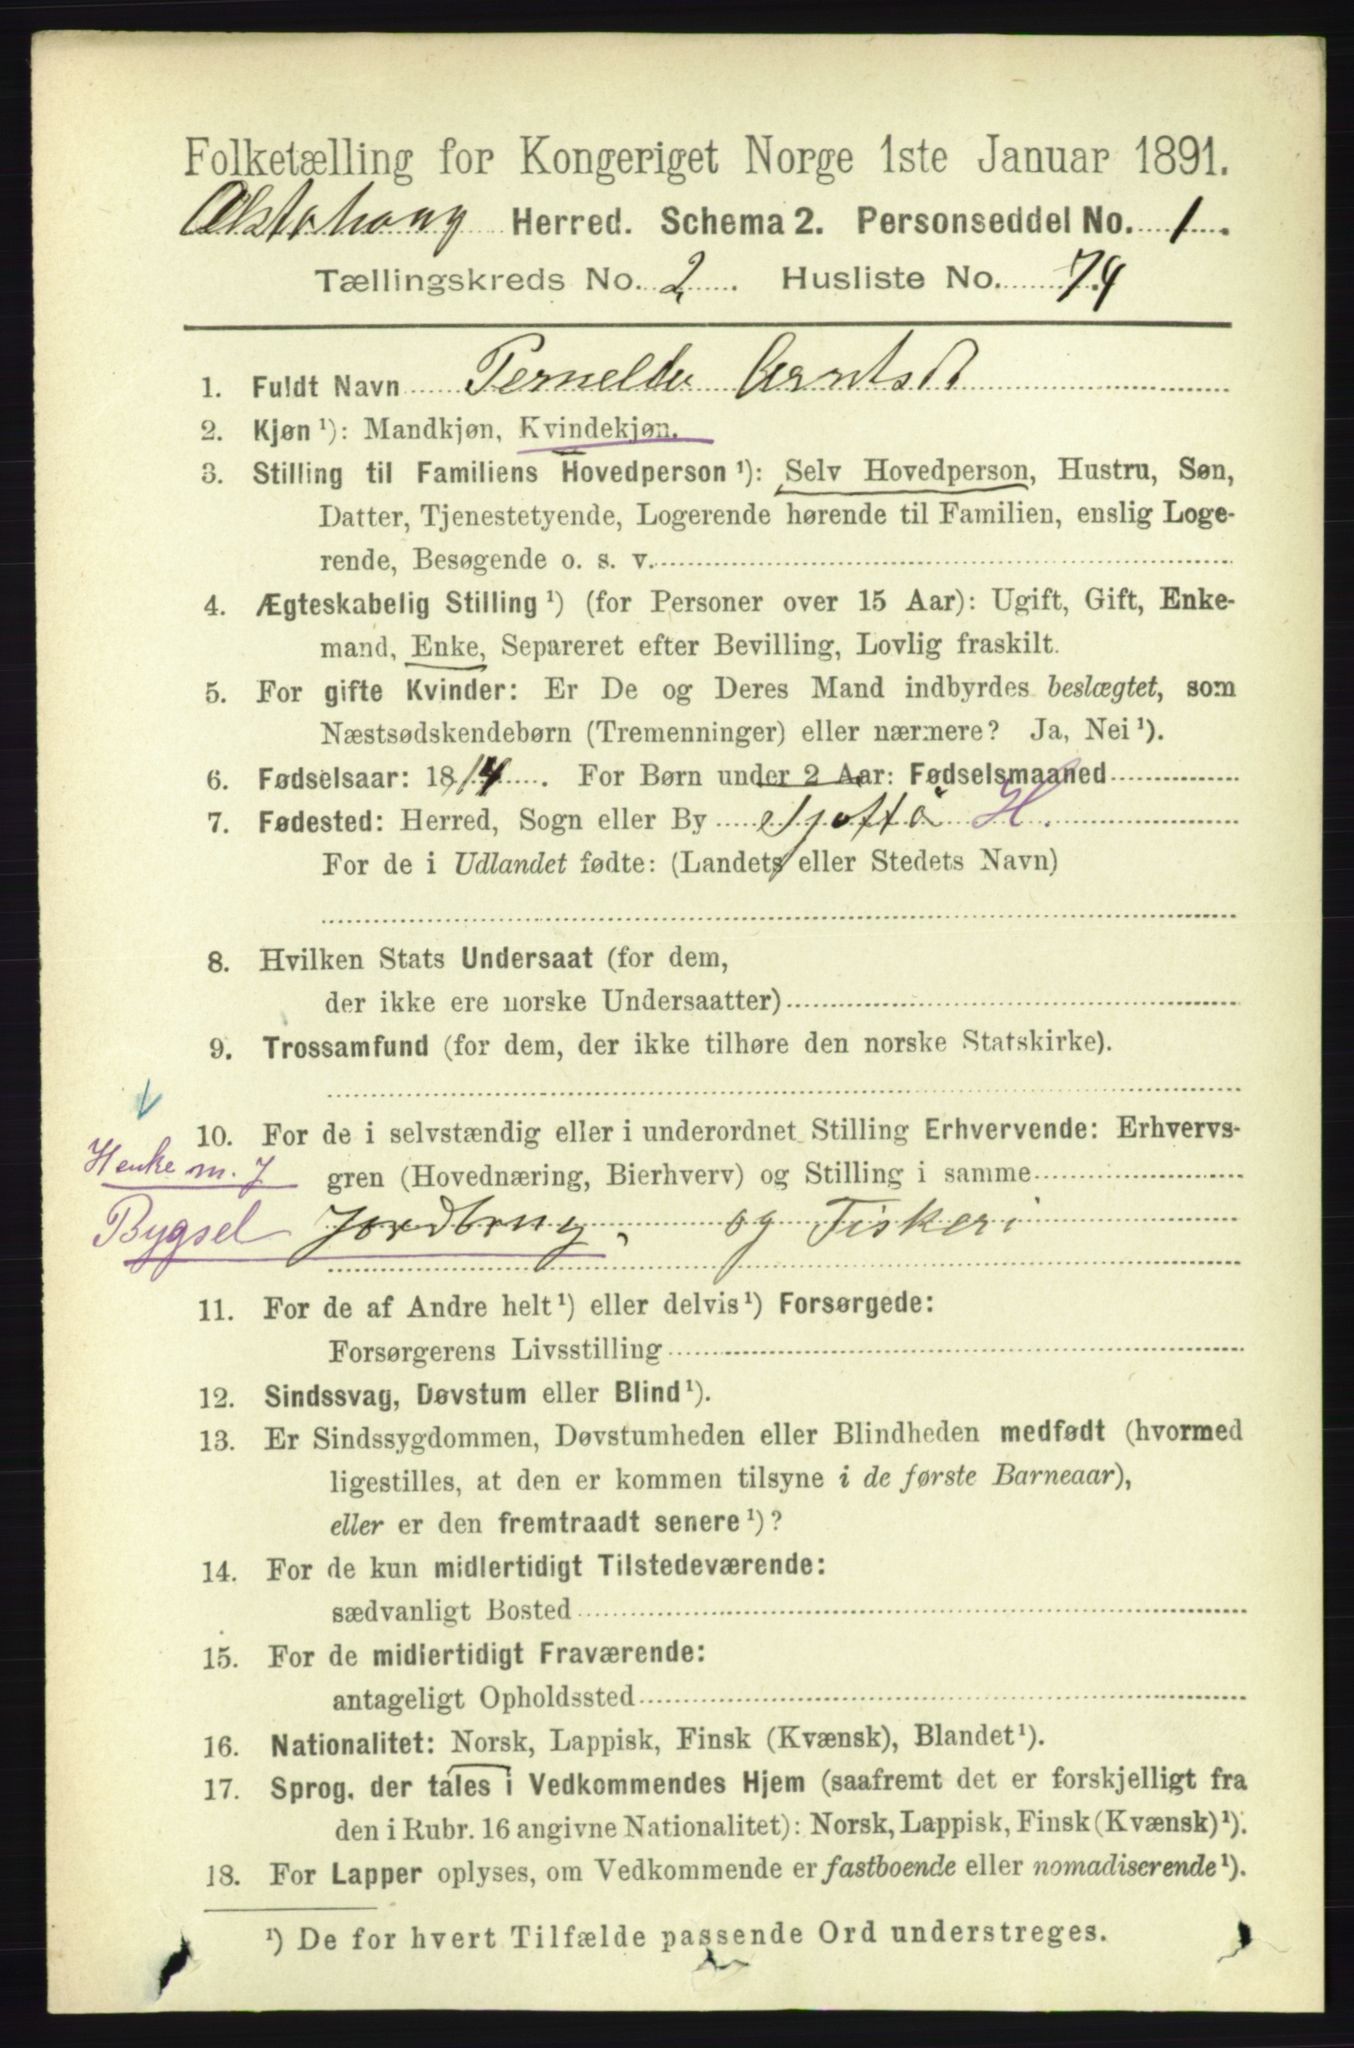 Folketælling for Kongeriget Norge 1ste Januar 1891.
Alstahoug Herred. Schema 2. Personseddel No. 1.
Tællingskreds No. 2. Husliste No. 74
1. Fuldt Navn Pernelde Arntsd
2. Kjøn ¹): Mandkjøn, Kvindekjøn.
3. Stilling til Familiens Hovedperson ¹): Selv Hovedperson, Hustru, Søn,
Datter, Tjenestetyende, Logerende hørende til Familien, enslig Loge-
rende, Besøgende o. s. v.
4. Ægteskabelig Stilling ¹) (for Personer over 15 Aar): Ugift, Gift, Enke-
mand, Enke, Separeret efter Bevilling, Lovlig fraskilt.
5. For gifte Kvinder: Er De og Deres Mand indbyrdes beslægtet, som
Næstsødskendebørn (Tremenninger) eller nærmere? Ja, Nei ¹).
6. Fødselsaar: 1814. For Børn under 2 Aar: Fødselsmaaned
7. Fødested: Herred, Sogn eller By Tjøtta H.
For de i Udlandet fødte: (Landets eller Stedets Navn)
8. Hvilken Stats Undersaat (for dem,
der ikke ere norske Undersaatter)
9. Trossamfund (for dem, der ikke tilhøre den norske Statskirke).
10. For de i selvstændig eller i underordnet Stilling Erhvervende: Erhvervs-
Henke m. J gren (Hovednæring, Bierhverv) og Stilling i samme
Bygsel Jordbrug, og Fiskeri
11. For de af Andre helt ¹) eller delvis ¹) Forsørgede:
Forsørgerens Livsstilling
12. Sindssvag, Døvstum eller Blind ¹).
13. Er Sindssygdommen, Døvstumheden eller Blindheden medfødt (hvormed
ligestilles, at den er kommen tilsyne i de første Barneaar),
eller er den fremtraadt senere ¹)?
14. For de kun midlertidigt Tilstedeværende:
sædvanligt Bosted
15. For de midlertidigt Fraværende:
antageligt Opholdssted
16. Nationalitet: Norsk, Lappisk, Finsk (Kvænsk), Blandet ¹).
17. Sprog, der tales i Vedkommendes Hjem (saafremt det er forskjelligt fra
den i Rubr. 16 angivne Nationalitet): Norsk, Lappisk, Finsk (Kvænsk) ¹).
18. For Lapper oplyses, om Vedkommende er fastboende eller nomadiserende ¹).
¹) De for hvert Tilfælde passende Ord understreges.